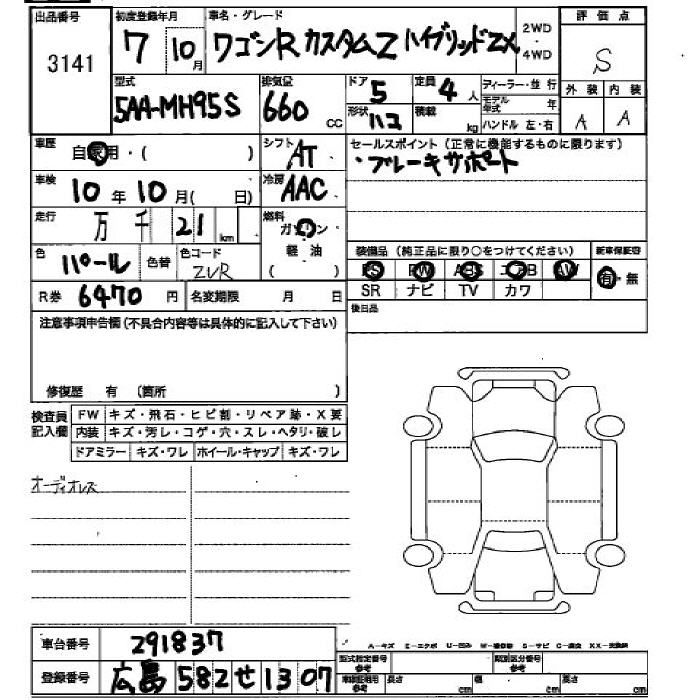 出品番号 初度登録年月 車名・グレード 2WD ・ 4WD 評価点
3141 7 10月 ワゴンR カスタムZ ハイブリッドZX S
型式 排気量 ドア 5 定員 4人 ディーラー・並行 外装 内装
5AA-MH95S 660 cc 形状 ハコ 積載 kg モデル年式 年 A A
ハンドル 左・右
車歴 自家用・( ) シフト AT セールスポイント(正常に機能するものに限ります)
・ブレーキサポート
車検 10年10月( 日) 冷房 AAC
走行 万 千 21 km 燃料 ガソリン
軽油
( )
色 パール 色替 色コード ZVR
装備品(純正品に限り○をつけてください) 新車保証書
PS PW ABS エアB AW 有・無
SR ナビ TV カワ
R券 6470円 名変期限 月 日 後日品
注意事項申告欄(不具合内容等は具体的に記入して下さい)
修復歴 有 (箇所 )
検査員記入欄 FW キズ・飛石・ヒビ割・リペア跡・X要
内装 キズ・汚レ・コゲ・穴・スレ・ヘタリ・破レ
ドアミラー キズ・ワレ ホイール・キャップ キズ・ワレ
オーディオレス
車台番号 291837
A-キズ E-エクボ U-凹み W-補修跡 S-サビ C-腐食 XX-交換済
登録番号 広島 582 せ 1307
型式指定番号 参考 類別区分番号 参考
車庫証明用 参考 長さ cm 幅 cm 高さ cm